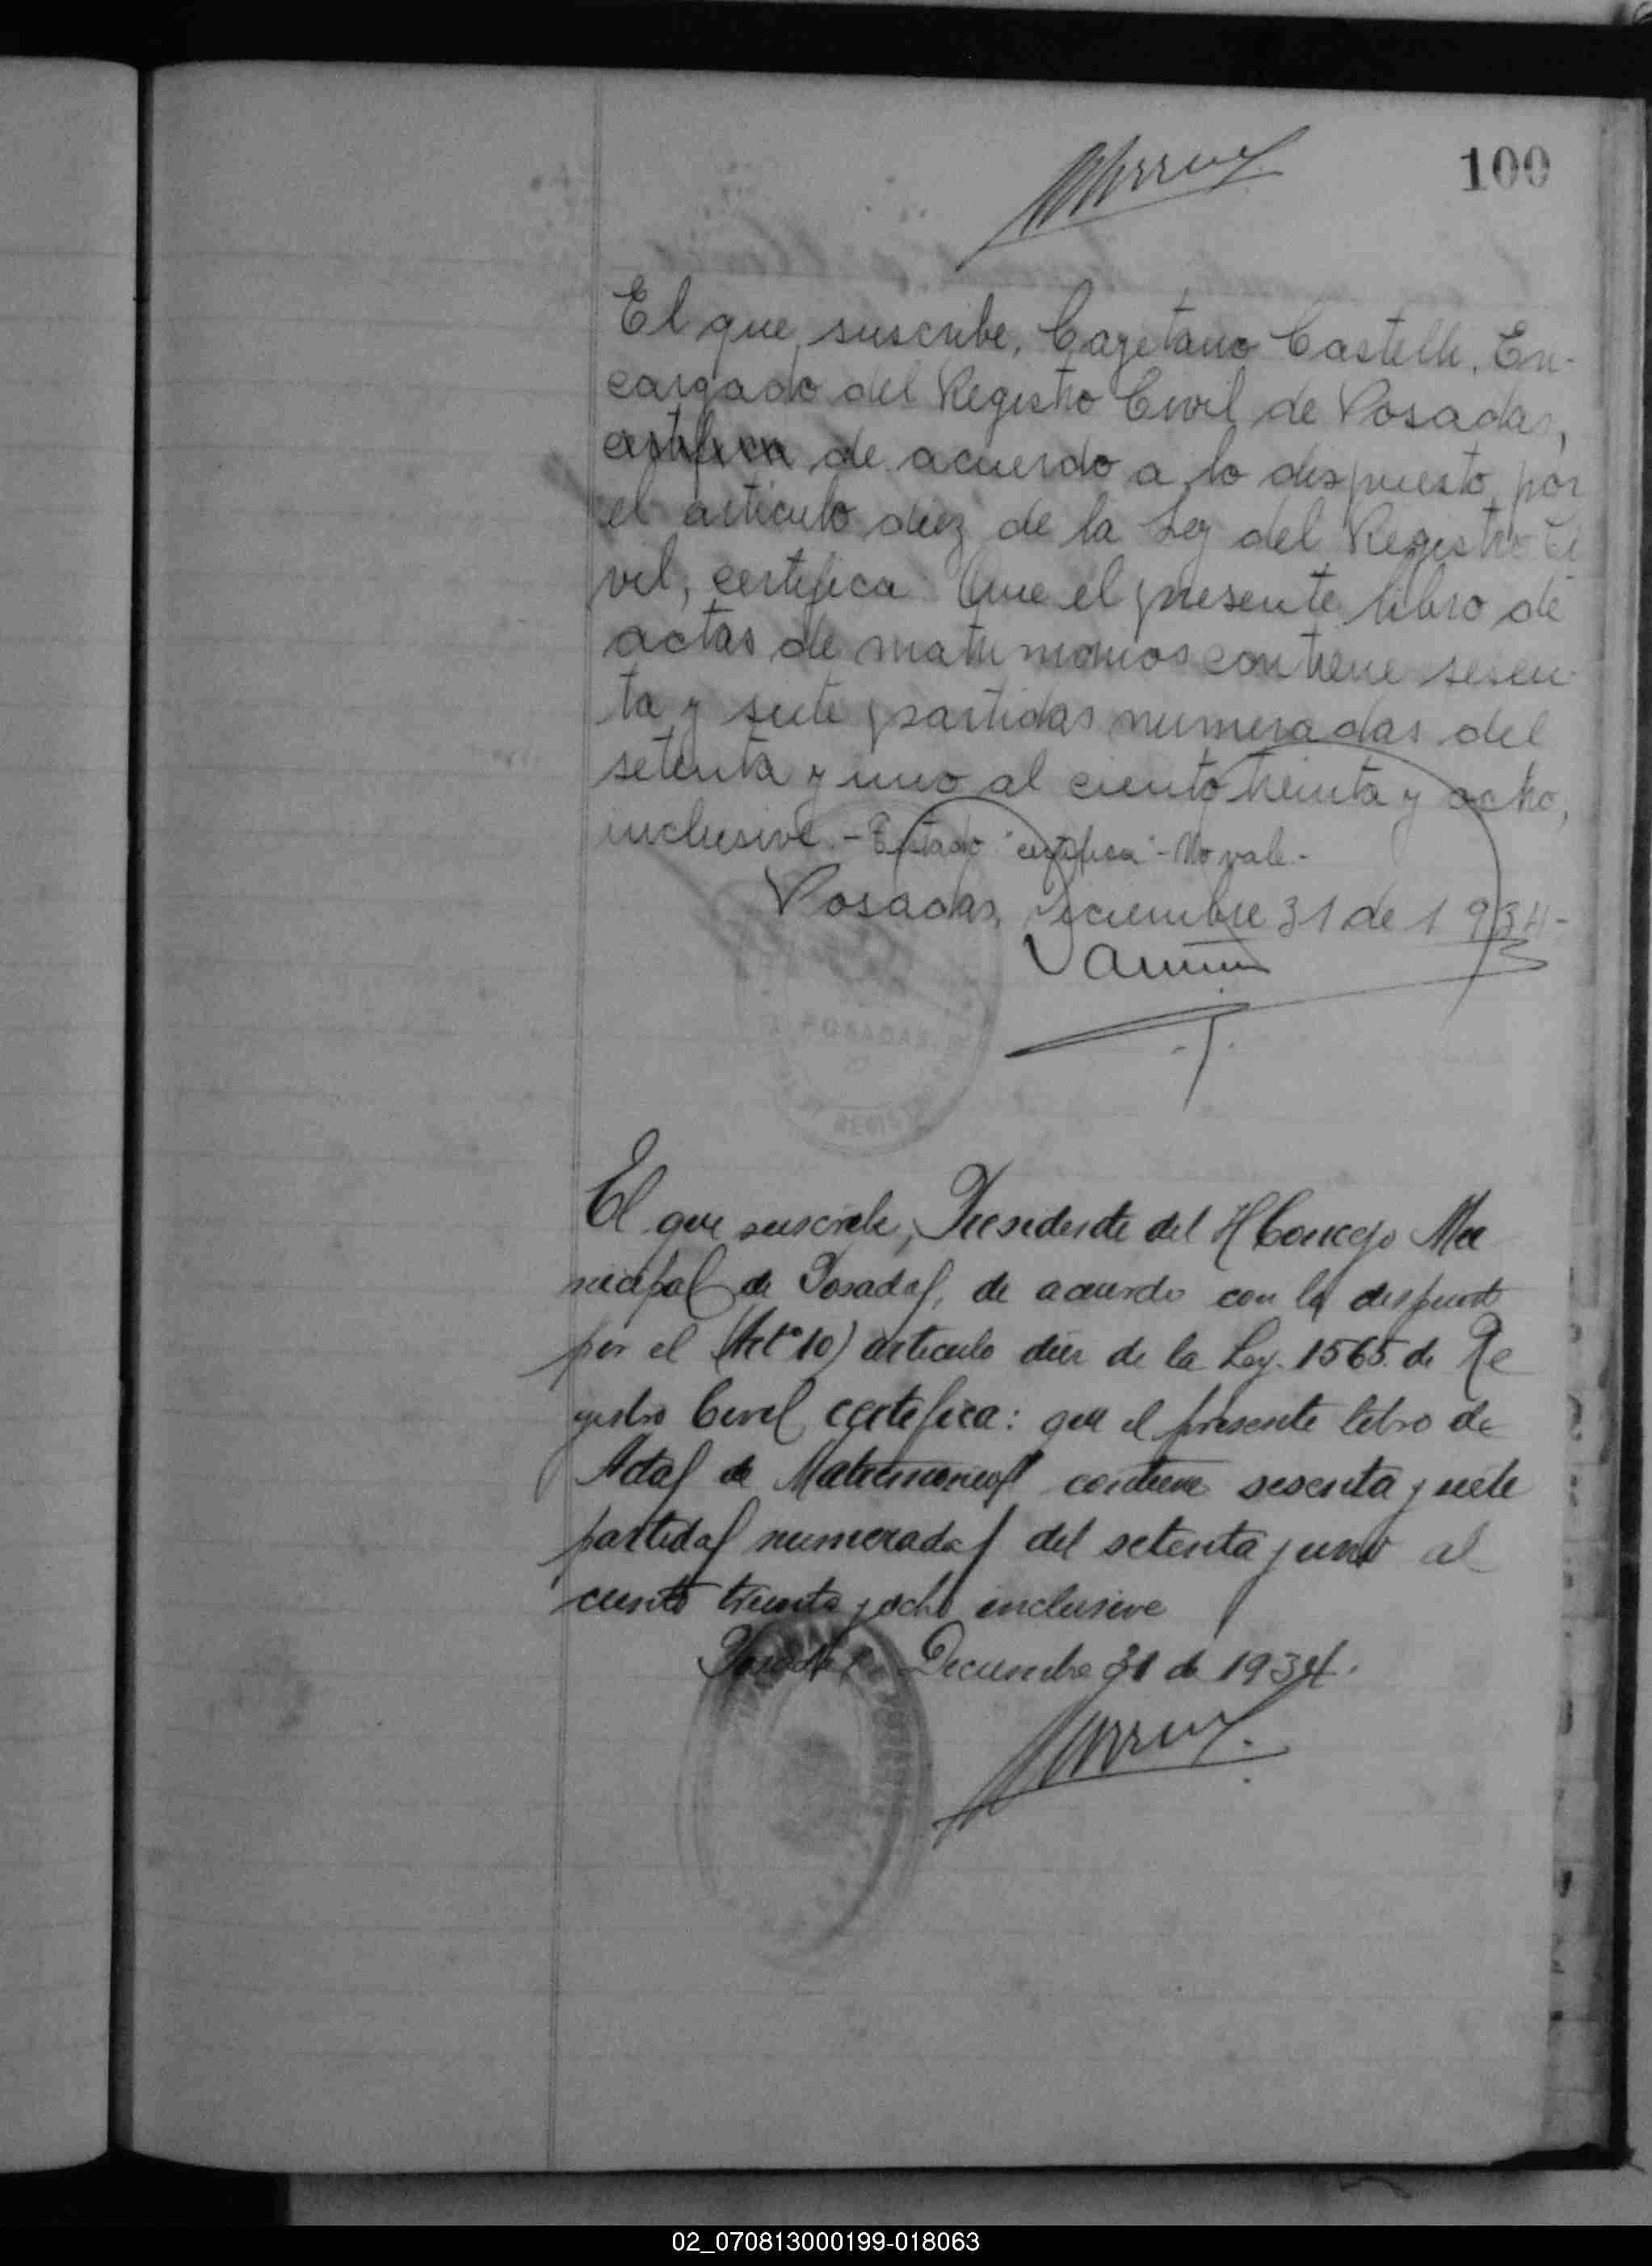 100
El que suscribe, Cayetano Castelli, En-
cargado del Registro Civil de Posadas,
certifica de acuerdo a lo dispuesto por
el artículo diez de la Ley del Registro Ci
vil, certifica: Que el presente libro de
actas de matrimonios contiene sesen-
ta y siete partidas numeradas del
setenta y uno al ciento treinta y ocho,
inclusive.- Testado "certifica"- No vale-
Posadas, Diciembre 31 de 1934-
POSADAS
El que suscribe, Presidente del H Concejo Mu
nicipal de Posadas, de acuerdo con lo dispuesto
por el (Art° 10) articulo diez de la Ley. 1565. de Re
gistro Civil certifica: que el presente libro de
Actas de Matrimonios contiene sesenta y siete
partidas numeradas del setenta y uno al
ciento treinta y ocho inclusive
Posadas Diciembre 31 de 1934.
02_070813000199-018063